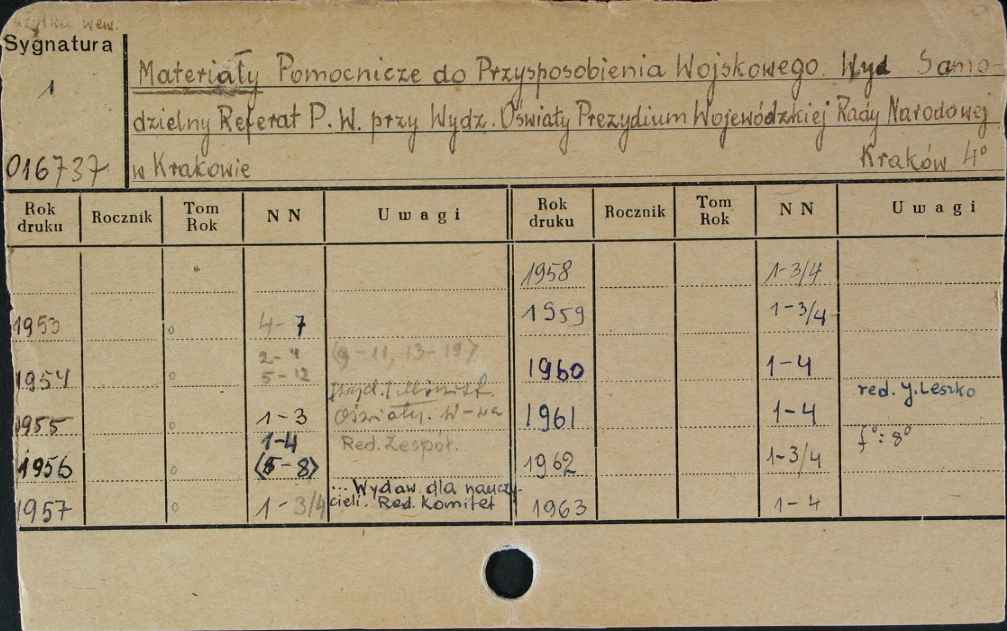 użytku wew.
Sygnatura
1
016737
Materiały Pomocnicze do Przysposobienia Wojskowego. Wyd Samo-
dzielny Referat P. W. przy Wydz. Oświaty Prezydium Wojewódzkiej Rady Narodowej
w Krakowie Kraków 4°
Rok druku Rocznik Tom Rok N N Uwagi Rok druku Rocznik Tom Rok N N Uwagi
1958 1-3/4
1953 4-7 1959 1-3/4
2-4 (9-11, 13-19)
1954 5-12 1960 1-4
red. J. Leszko
1955 1-3 Oświaty. W-wa 1961 1-4
1-4 Red. Zespół. f°: 8°
1956 (5-8) 1962 1-3/4
... Wydaw. dla nauczy-
1957 1-3/4 cieli. Red. Komitet 1963 1-4